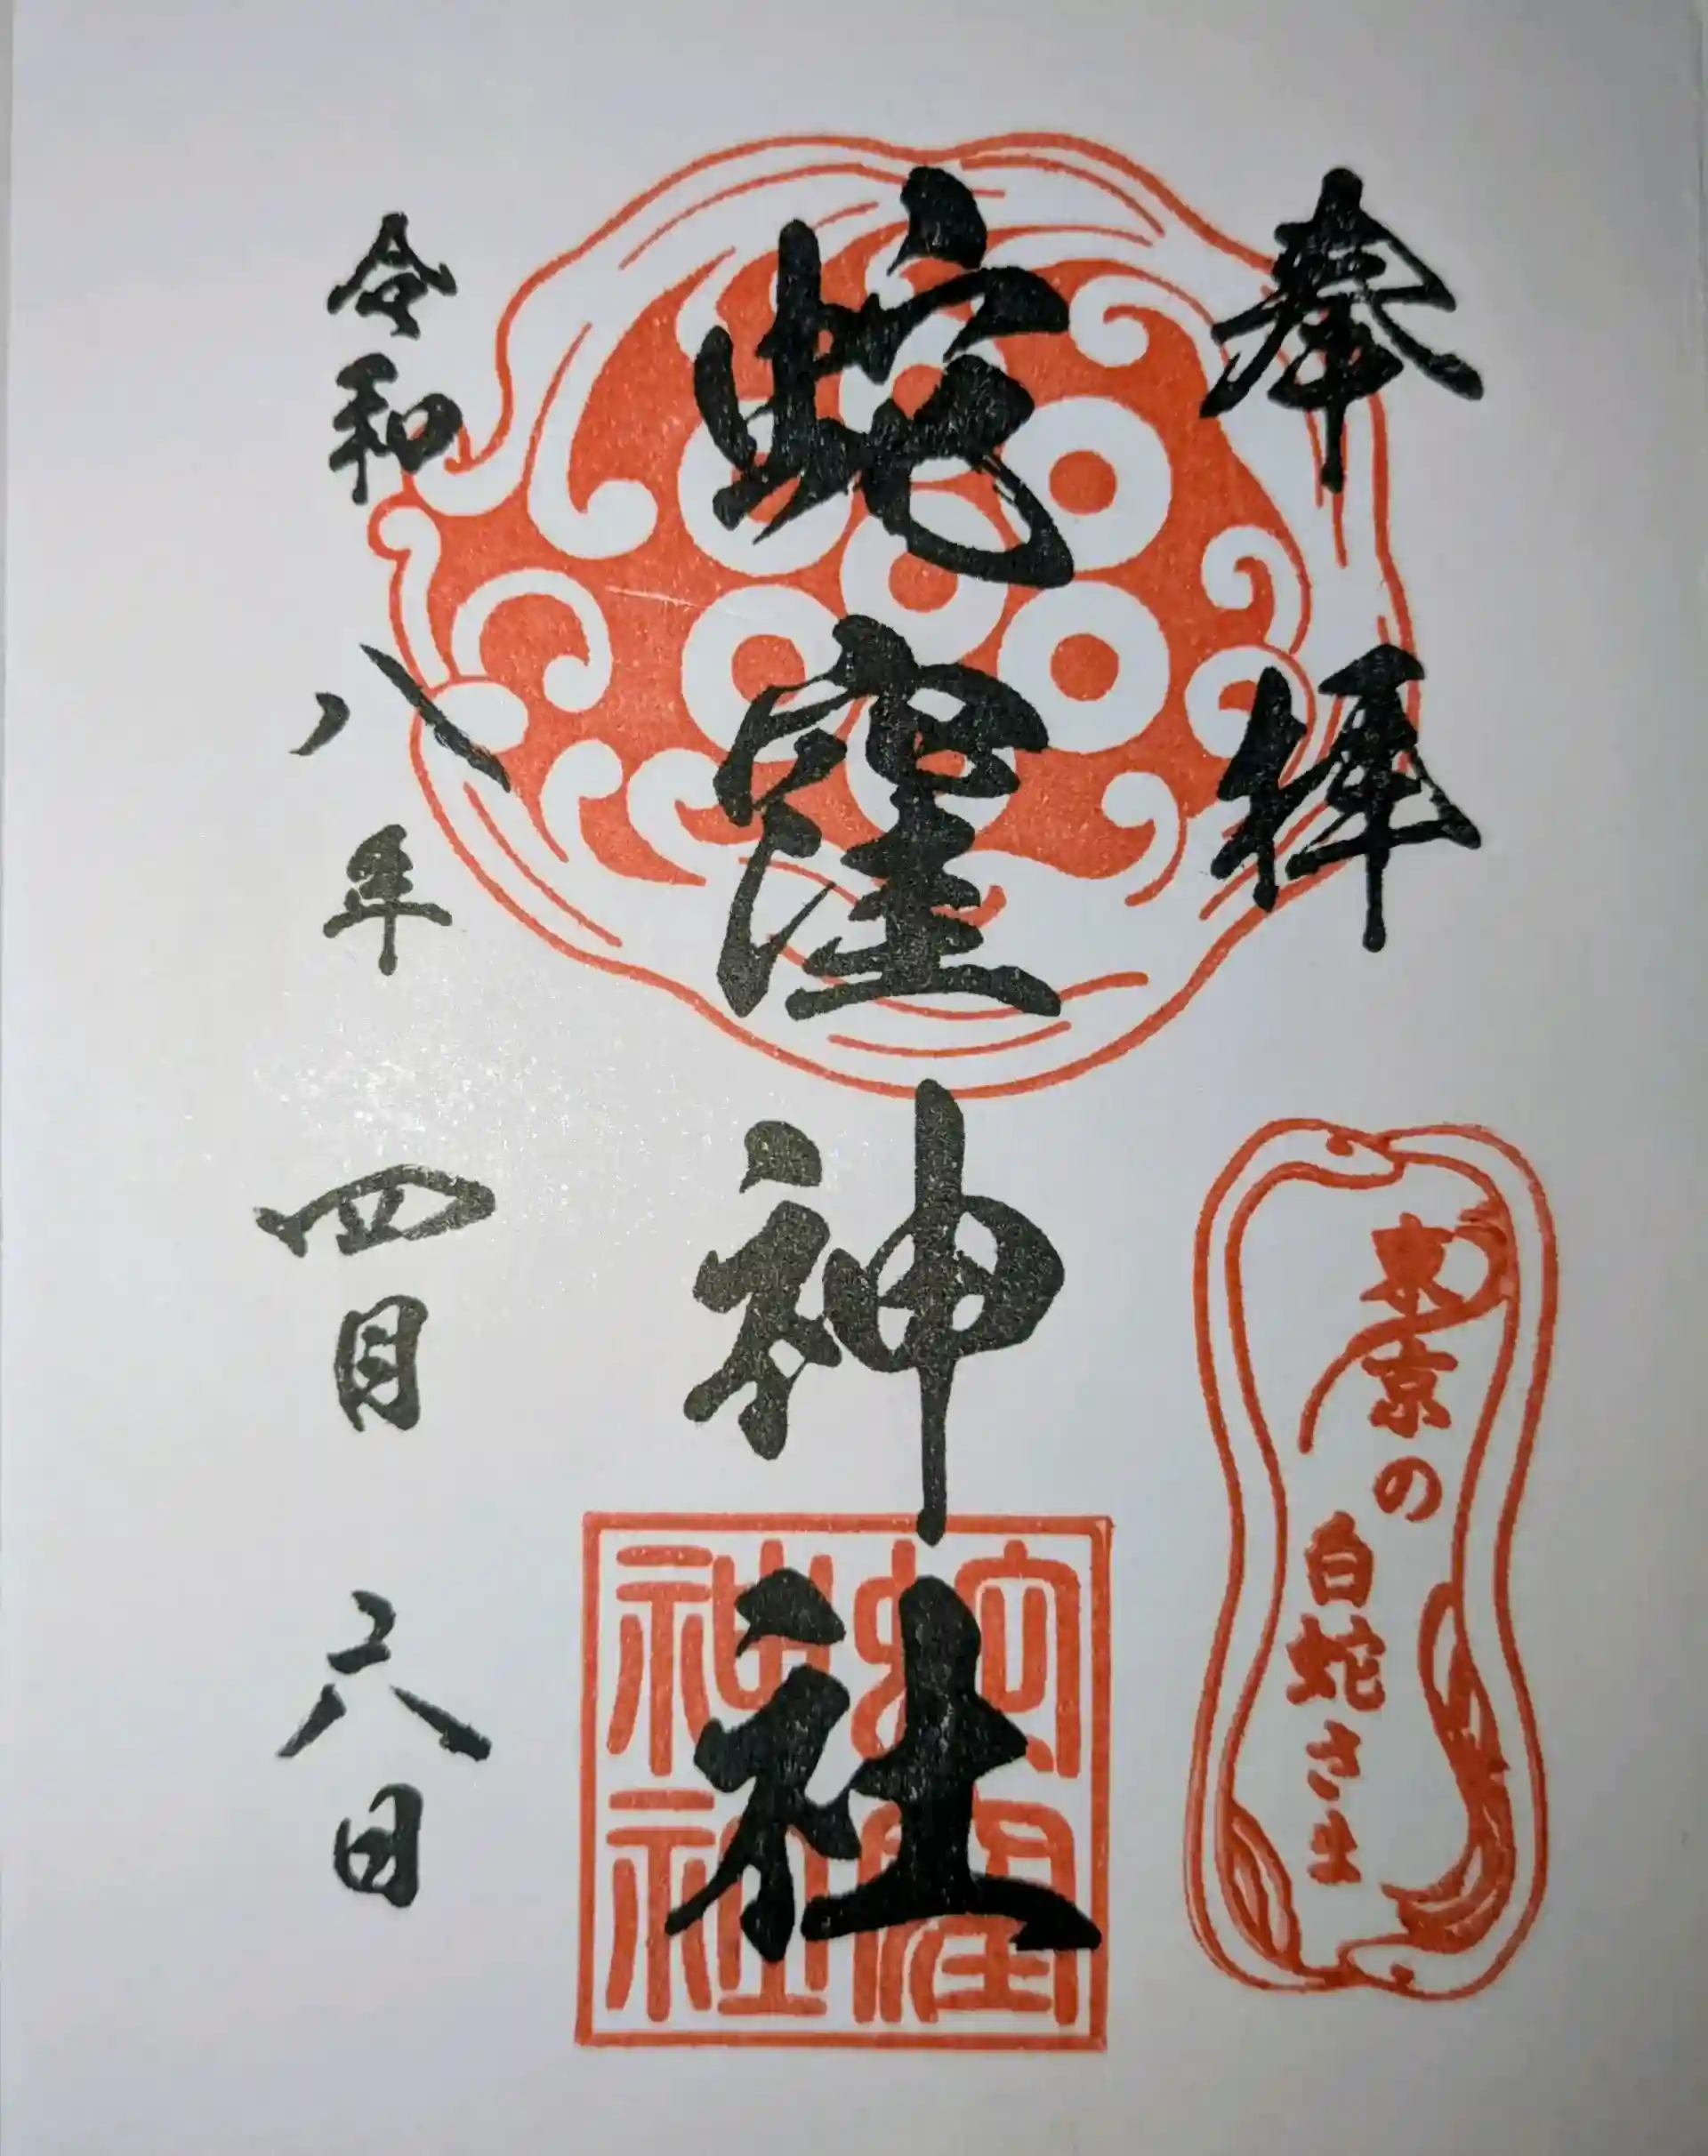 奉拝
東京の
白蛇さま
蛇窪神社
蛇窪
神社
令和八年四月六日